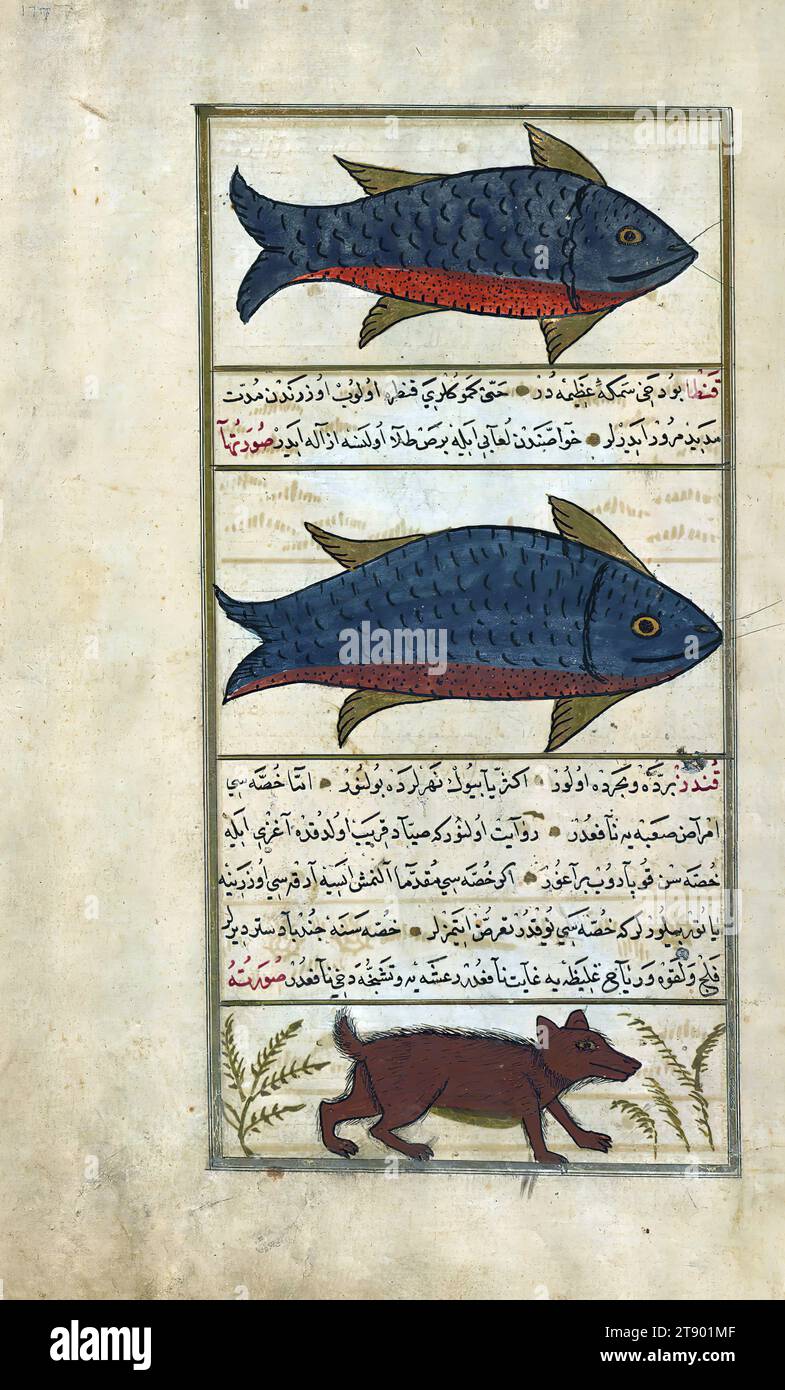 قنطا بو دخى سمكهٔ عظيمه در حتى كموكلرى قنطره اولوب اوزرندن مدت
مديد مرور ايدرلر خواصندن لعابى ايله برص طلا اولنسه ازاله ايدر صورتها
قندز برده و بحرده اولور اكثريا بيوك نهرلرده بولنور امّا خصيه سى
امراض صعبه يه نافعدر روايت اولنور كه صياد قريب اولدقده آغزى ايله
خصيه سن قوپادوب براغور اكر خصيه سى مقدما النمش ايسه آرقه سى اوزرينه
ياتور بيلورلر كه خصيه سى يوقدر تعرض ايتمزلر خصيه سنه جندبادستر ديرلر
فلج و لقوه و رياح غليظه يه غايت نافعدر رعشه يه و تشنجه دخى نافعدر صورته
alamy
alamy
Image ID: 2T901MF
www.alamy.com